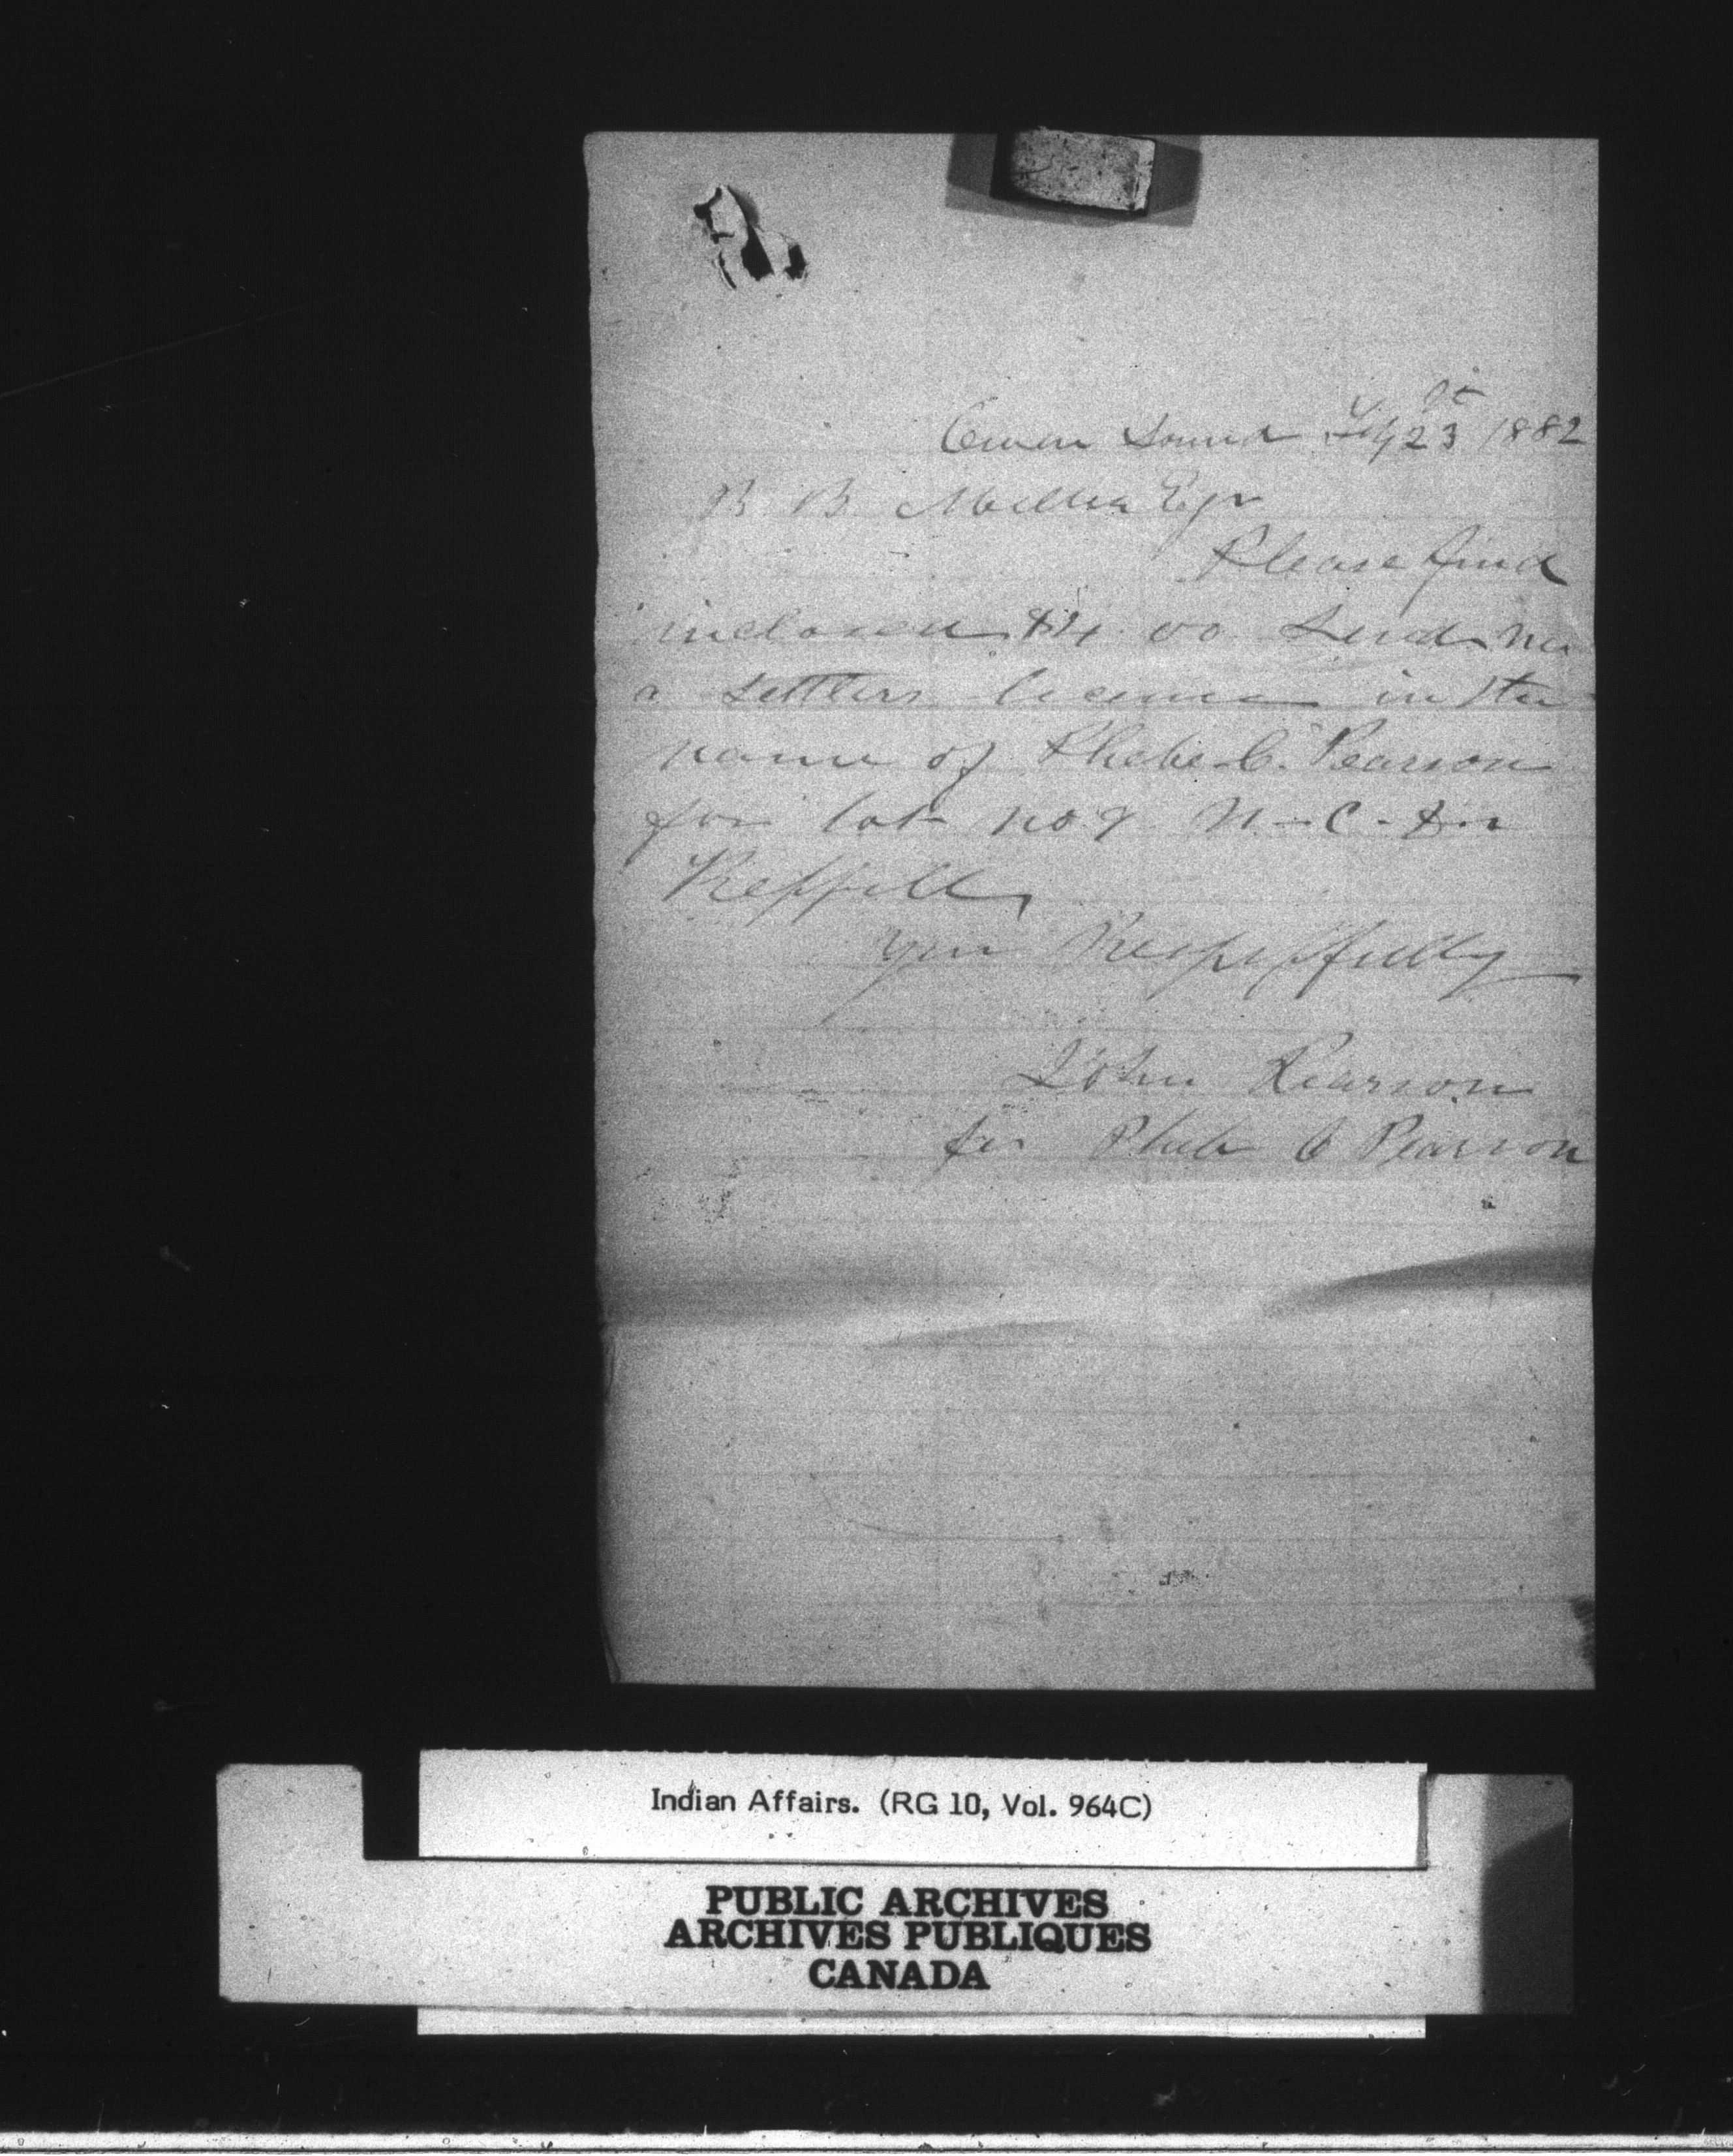 Owen Sound 23 1882
B B Miller Eqr
Please find
inclosed $4 00 Send me
a settlers licence in the
name of Phebe C. Pearson
for lot no 9 N - C - D in
Keppell,
your Respepfully
John Pearson
for Pheb C Pearson
Indian Affairs. (RG 10, Vol. 964C)
PUBLIC ARCHIVES
ARCHIVES PUBLIQUES
CANADA